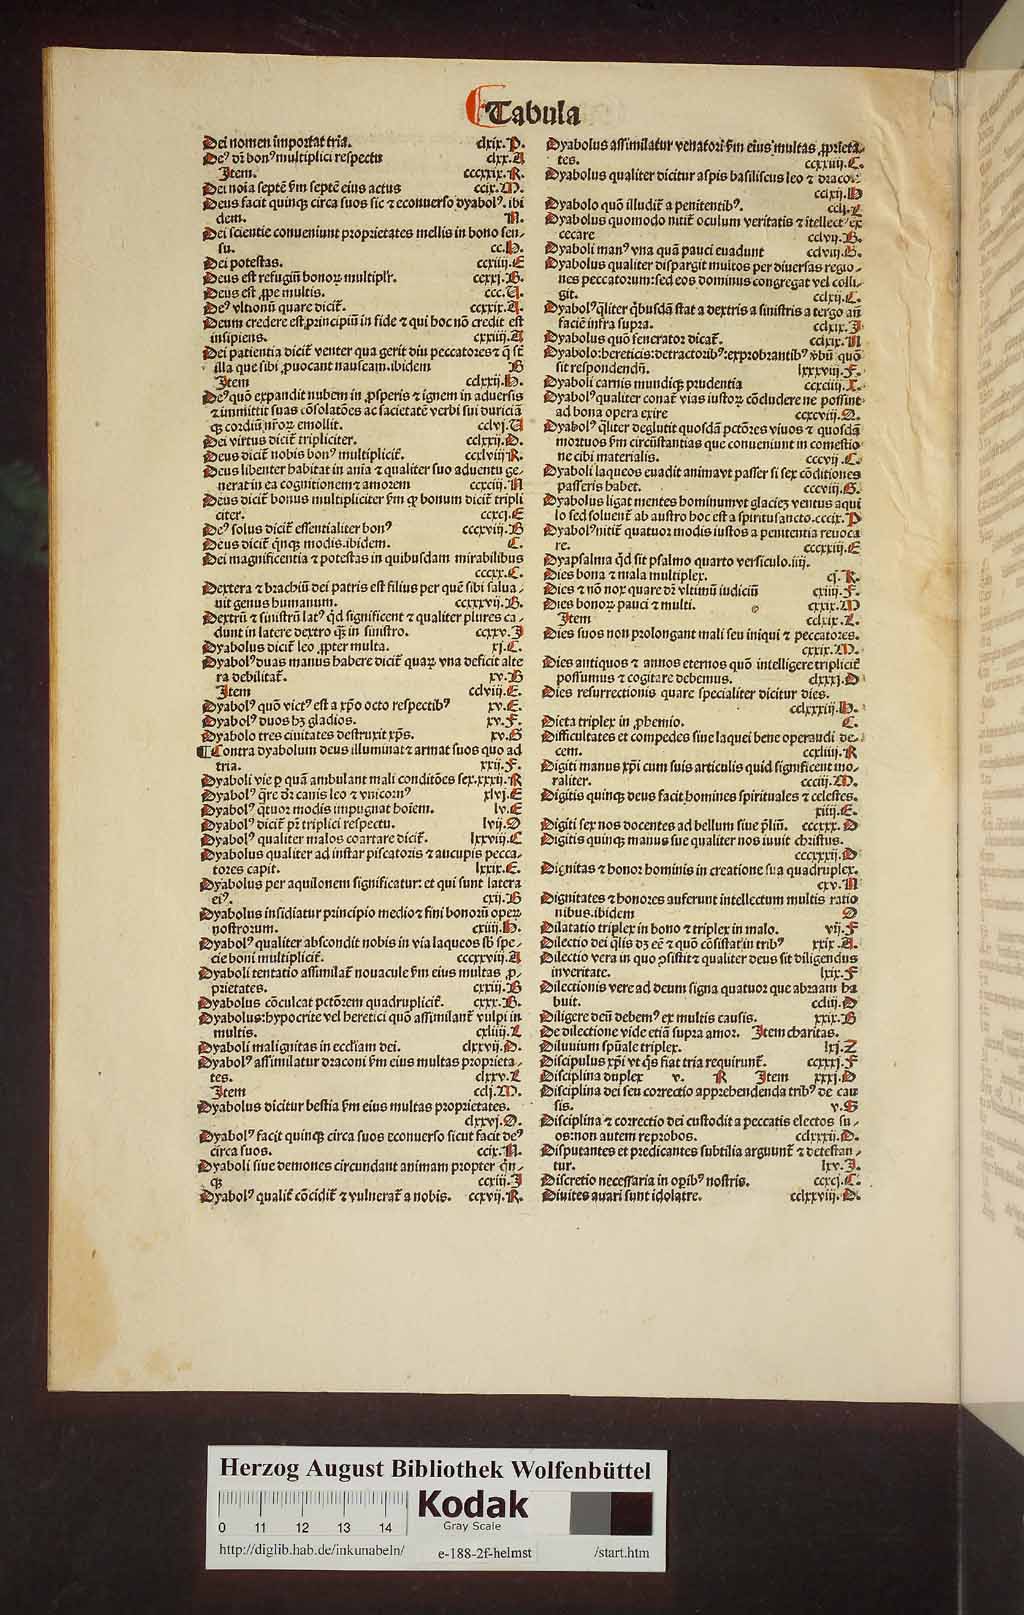 Tabula
Dei nomen importat tria. clxix.P.
Deꝰ dr̄ bonꝰ multiplici respectu clxx.A
Item. cccxxix.R.
Dei noīa septē ẜm septē eius actus ccix.M.
Deus facit quinqꝫ circa suos sic ⁊ econuerso dyabolꝰ. ibi
dem. N.
Dei scientie conueniunt proprietates mellis in bono sen-
su. cc.H.
Dei potestas. ccxiiij.E
Deus est refugiū bonoꝝ multiplr̄. ccxxj.B.
Deus est ꝓpe multis. ccc.A.
Deꝰ vltionū quare dicit̄. ccxxix.A.
Deum credere est principiū in fide ⁊ qui hoc nō credit est
insipiens. cxxiiij.A
Dei patientia dicit̄ venter qua gerit diu peccatores ⁊ q̄ st̄
illa que sibi ꝓuocant nauseam.ibidem B
Item cclxxij.H.
Deꝰ quō expandit nubem in ꝓsperis ⁊ ignem in aduersis
⁊ immittit suas cōsolatōes ac sacietatē verbi sui duriciā
qꝫ cordiū nr̄oꝝ emollit. cclvj.A
Dei virtus dicit̄ tripliciter. cclxxij.D.
Deus dicit̄ nobis bonꝰ multiplicit̄. ccxlviij R.
Deus libenter habitat in aīa ⁊ qualiter suo aduentu ge-
nerat in ea cognitionem ⁊ amorem ccxciij.N
Deus dicit̄ bonus multipliciter ẜm qꝫ bonum dicit̄ tripli
citer. ccxcj.E
Deꝰ solus dicit̄ essentialiter bonꝰ cccxviij.B
Deus dicit̄ q̄nqꝫ modis.ibidem. C.
Dei magnificentia ⁊ potestas in quibusdam mirabilibus
ccccxx.C.
Dextera ⁊ brachiū dei patris est filius per quē sibi salua-
uit genus humanum. ccccxxvij.B.
Dextrū ⁊ sinistrū latꝰ q̄d significent ⁊ qualiter plures ca-
dunt in latere dextro qꝫ in sinistro. ccxxv.J
Dyabolus dicit̄ leo ꝓpter multa. xj.C.
Dyabolꝰ duas manus habere dicit̄ quaꝝ vna deficit alte
ra debilitat̄. xv.B
Item cclviij.E.
Dyabolꝰ quō victꝰ est a xp̄o octo respectibꝰ xv.E.
Dyabolꝰ duos hꝫ gladios. xv.F.
Dyabolo tres ciuitates destruxit xp̄s. xv.G
Contra dyabolum deus illuminat ⁊ armat suos quo ad
tria. xxij.F.
Dyaboli vie ꝑ quā ambulant mali conditōes sex.xxxij.R
Dyabolꝰ q̄re dr̄ canis leo ⁊ vnicornꝰ xlvj.E
Dyabolꝰ q̄tuor modis impugnat hoīem. lv.E
Dyabolꝰ dicit̄ pr̄ triplici respectu. lvij.O
Dyabolꝰ qualiter malos coartare dicit̄. lxxviij.C
Dyabolus qualiter ad instar piscatoris ⁊ aucupis pecca-
tores capit. lxxix.E.
Dyabolus per aquilonem significatur: et qui sunt latera
eiꝰ. cxij.B
Dyabolus insidiatur principio medio ⁊ fini bonorū operꝫ
nostrorum. cxiiij.H.
Dyabolꝰ qualiter abscondit nobis in via laqueos sb̄ spe-
cie boni multiplicit̄. ccccxviij.A
Dyaboli tentatio assimilat̄ nouacule ẜm eius multas ꝓ-
prietates. cxxiij.B
Dyabolus cōculcat pctōrem quadruplicit̄. cxxx.B.
Dyabolus:hypocrite vel heretici quō assimilant̄ vulpi in
multis. cxliiij.L
Dyaboli malignitas in ecclīam dei. clxxvij.D.
Dyabolꝰ assimilatur draconi ẜm eius multas proprieta-
tes. clxxv.L
Item cclj.M.
Dyabolus dicitur bestia ẜm eius multas proprietates.
clxxvj.O.
Dyabolꝰ facit quinqꝫ circa suos econuerso sicut facit deꝰ
circa suos. ccix.N.
Dyaboli siue demones circundant animam propter q̄n-
qꝫ ccxiij.J
Dyabolꝰ qualit̄ cōcidit̄ ⁊ vulnerat̄ a nobis. ccxvij.R.
Dyabolus assimilatur venatori ẜm eius multas ꝓprieta-
tes. ccxxiiij.C.
Dyabolus qualiter dicitur aspis basiliscus leo ⁊ draco.
cclxij.H
Dyabolo quō illudit̄ a penitentibꝰ. cclj.L
Dyabolus quomodo nitit̄ oculum veritatis ⁊ itellectꝰ ex
cecare cclvij.B.
Dyaboli manꝰ vna quā pauci euadunt cclviij.G.
Dyabolus qualiter dispargit multos per diuersas regio-
nes peccatorum:sed eos dominus congregat vel colli-
git. cclxij.C.
Dyabolꝰ q̄liter q̄busdā stat a dextris a sinistris a tergo añ
faciē infra supra. cclxix.J
Dyabolus quō fenerator dicat̄. cclxix.N
Dyabolo:hereticis:detractoribꝰ:exprobrantibꝰ v̄bū quō
sit respondendū. lxxxviij.F.
Dyaboli carnis mundiqꝫ prudentia ccxciiij.X.
Dyabolꝰ qualiter conat̄ vias iustoꝝ cōcludere ne possint
ad bona opera exire ccxcviij.O.
Dyabolꝰ q̄liter deglutit quosdā pctōres viuos ⁊ quosdā
mortuos ẜm circūstantias que conueniunt in comestio
ne cibi materialis. cccvij.C.
Dyaboli laqueos euadit anima vt passer si sex cōditiones
passeris habet. cccviij.G.
Dyabolus ligat mentes hominum vt glacieꝫ ventus aqui
lo sed soluent̄ ab austro hoc est a spiritusancto.cccix.P
Dyabolꝰ nitit̄ quatuor modis iustos a penitentia reuoca
re. cccxxiij.E
Dyapsalma q̄d sit psalmo quarto versiculo.iiij.
Dies bona ⁊ mala multiplex. cj.R.
Dies ⁊ nō nox quare dr̄ vltimū iudiciū cxiiij.F.
Dies bonoꝝ pauci ⁊ multi. cxxix.M
Item cclxix.L.
Dies suos non prolongant mali seu iniqui ⁊ peccatores.
cxxix.M.
Dies antiquos ⁊ annos eternos quō intelligere triplicit̄
possumus ⁊ cogitare debemus. clxxxj.D
Dies resurrectionis quare specialiter dicitur dies.
cclxxxiij.H.
Dieta triplex in ꝓhemio. C.
Difficultates et compedes siue laquei bene operandi de-
cem. ccxliiij.R
Digiti manus xp̄i cum suis articulis quid significent mo-
raliter. ccciij.M.
Digitis quinqꝫ deus facit homines spirituales ⁊ celestes.
xiiij.E.
Digiti sex nos docentes ad bellum siue p̄liū. cccxxx.D
Digitis quinqꝫ manus sue qualiter nos iuuit christus.
cccxxxij.D
Dignitas ⁊ honor hominis in creatione sua quadruplex.
cxv.N
Dignitates ⁊ honores auferunt intellectum multis ratio
nibus.ibidem O
Dilatatio triplex in bono ⁊ triplex in malo. vij.F
Dilectio dei q̄lis dꝫ eē ⁊ quō cōsistat in tribꝰ xxix.A.
Dilectio vera in quo ꝯsistit ⁊ qualiter deus sit diligendus
in veritate. lxix.F
Dilectionis vere ad deum signa quatuor que abraam ha
buit. ccliij.D
Diligere deū debemꝰ ex multis causis. xxix.B
De dilectione vide etiā supra amor. Item charitas.
Diluuium spūale triplex. lxj.Z
Discipulus xp̄i vt q̄s fiat tria requirunt̄. ccxxxj.F
Disciplina duplex v. R Item xxxj.D
Disciplina dei seu correctio apprehendenda tribꝰ de cau
sis. v.S
Disciplina ⁊ correctio dei custodit a peccatis electos su-
os:non autem reprobos. cclxxxij.D.
Disputantes et predicantes subtilia arguunt̄ ⁊ detestan-
tur. lxv.J.
Discretio necessaria in oꝑibꝰ nostris. ccxcj.C.
Diuites auari sunt idolatre. cclxxviij.D.
Herzog August Bibliothek Wolfenbüttel
Kodak
Gray Scale
0 11 12 13 14
http://diglib.hab.de/inkunabeln/ e-188-2f-helmst /start.htm